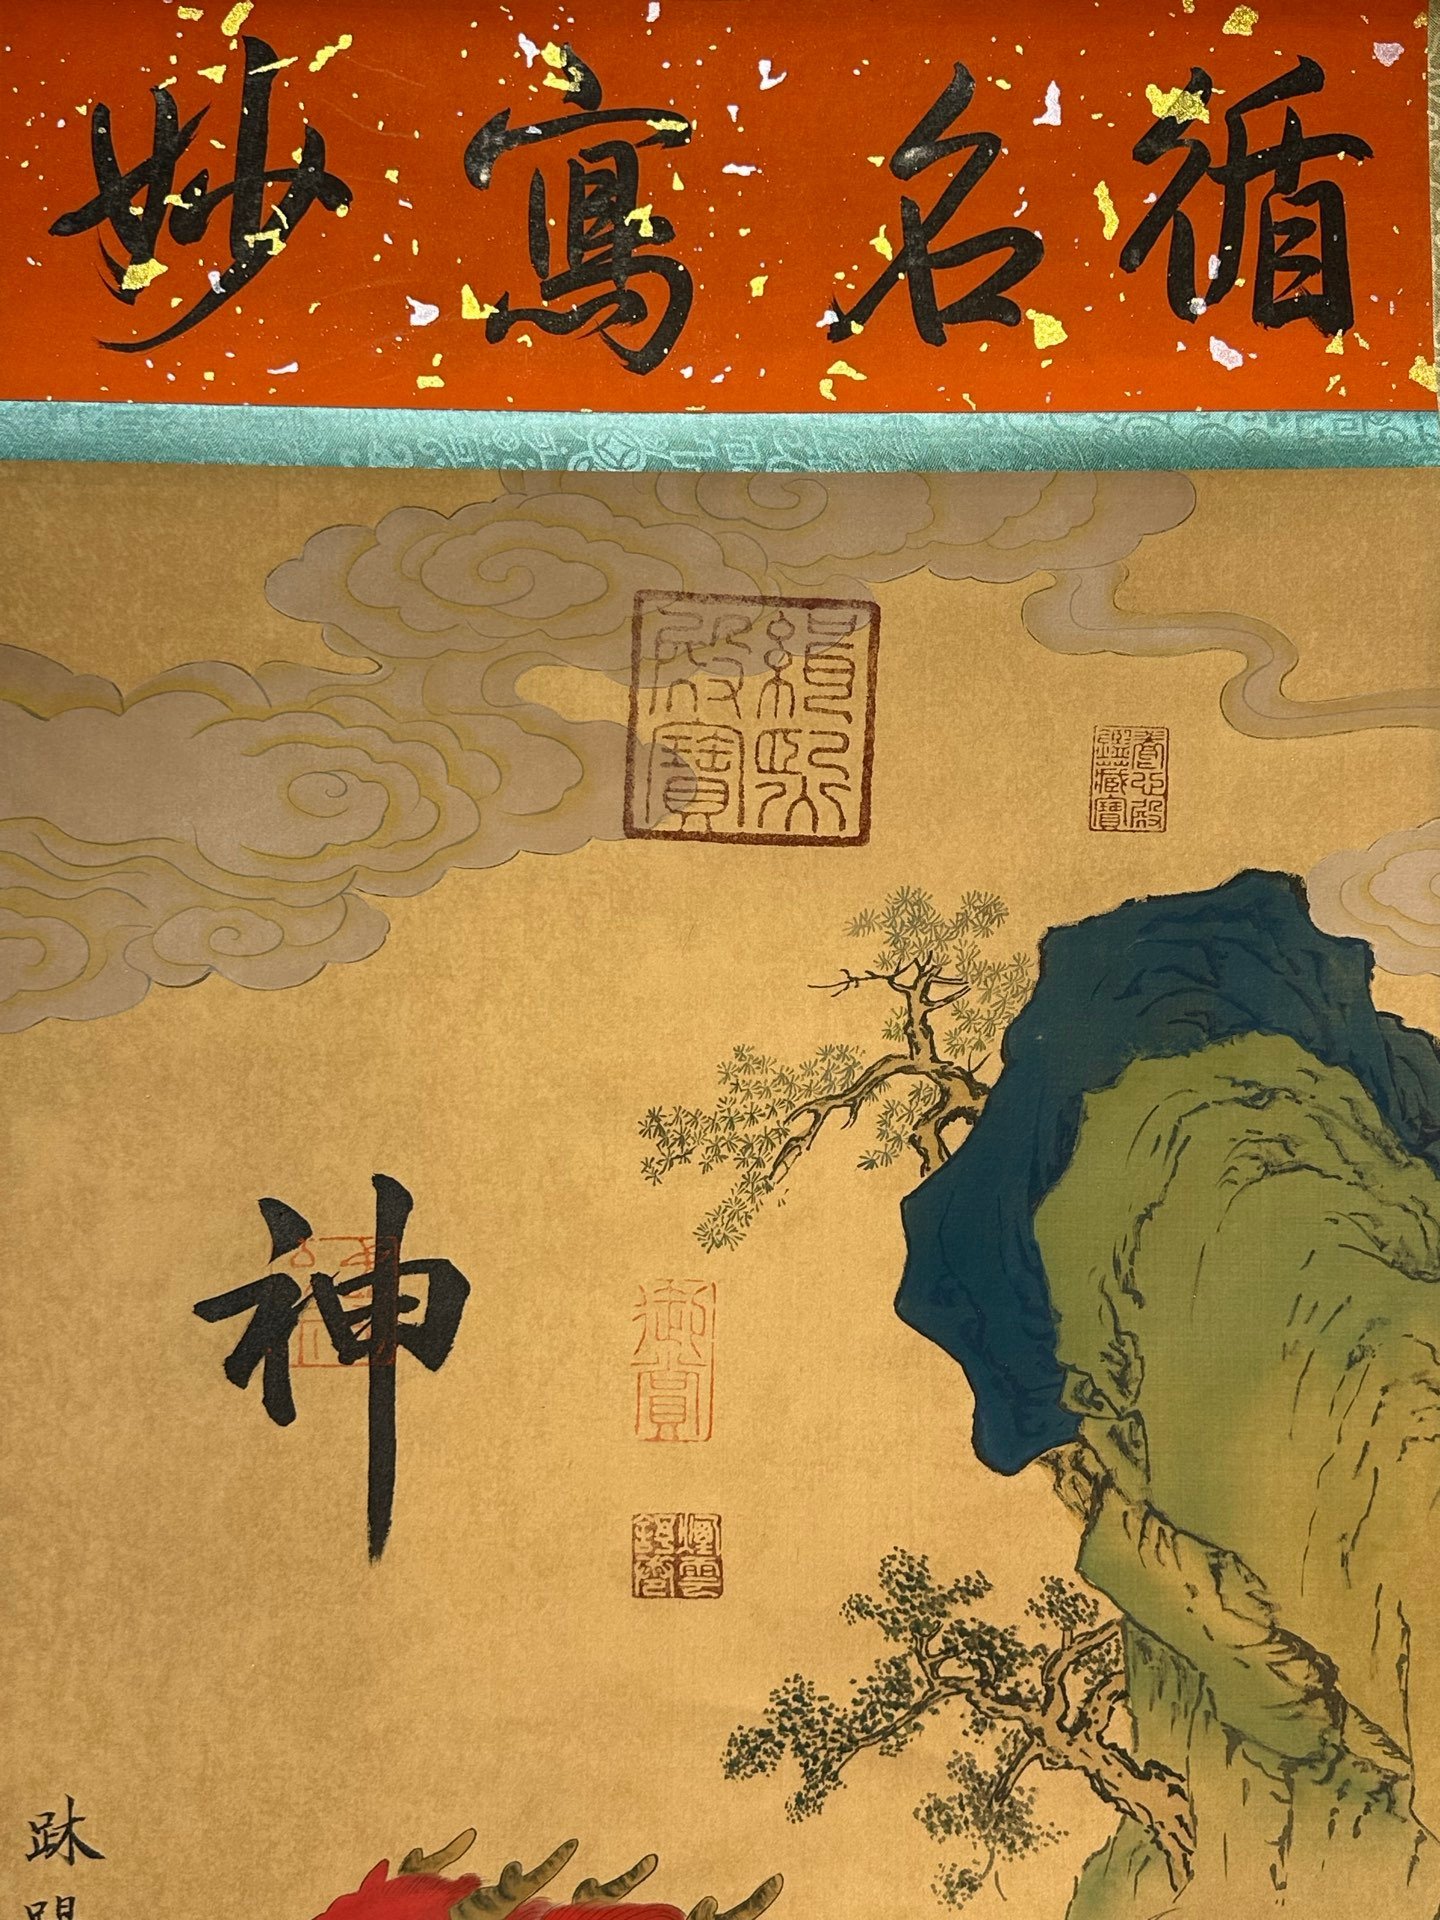 循名寫妙
緝熙
殿寶
養心殿
鑑藏寶
御賞
煙雲
神
跊